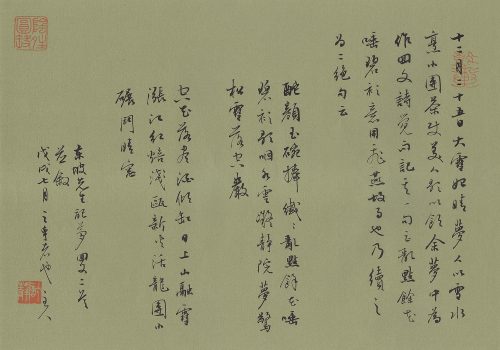 十二月二十五日大雪始晴夢人以雪水
烹小團茶使美人歌以飲余夢中為
作回文詩覺而記其一句云亂點餘花
唾碧衫意用飛燕故事也乃續之
為二絕句云
酡顏玉碗捧纖纖亂點餘花唾
碧衫歌咽水雲凝靜院夢驚
松雪落空巖
空花落盡酒傾缸日上山融雪
漲江紅焙淺甌新火活龍團小
碾鬥晴窗
東坡先生記夢回文二首
并敘
戊戌七月